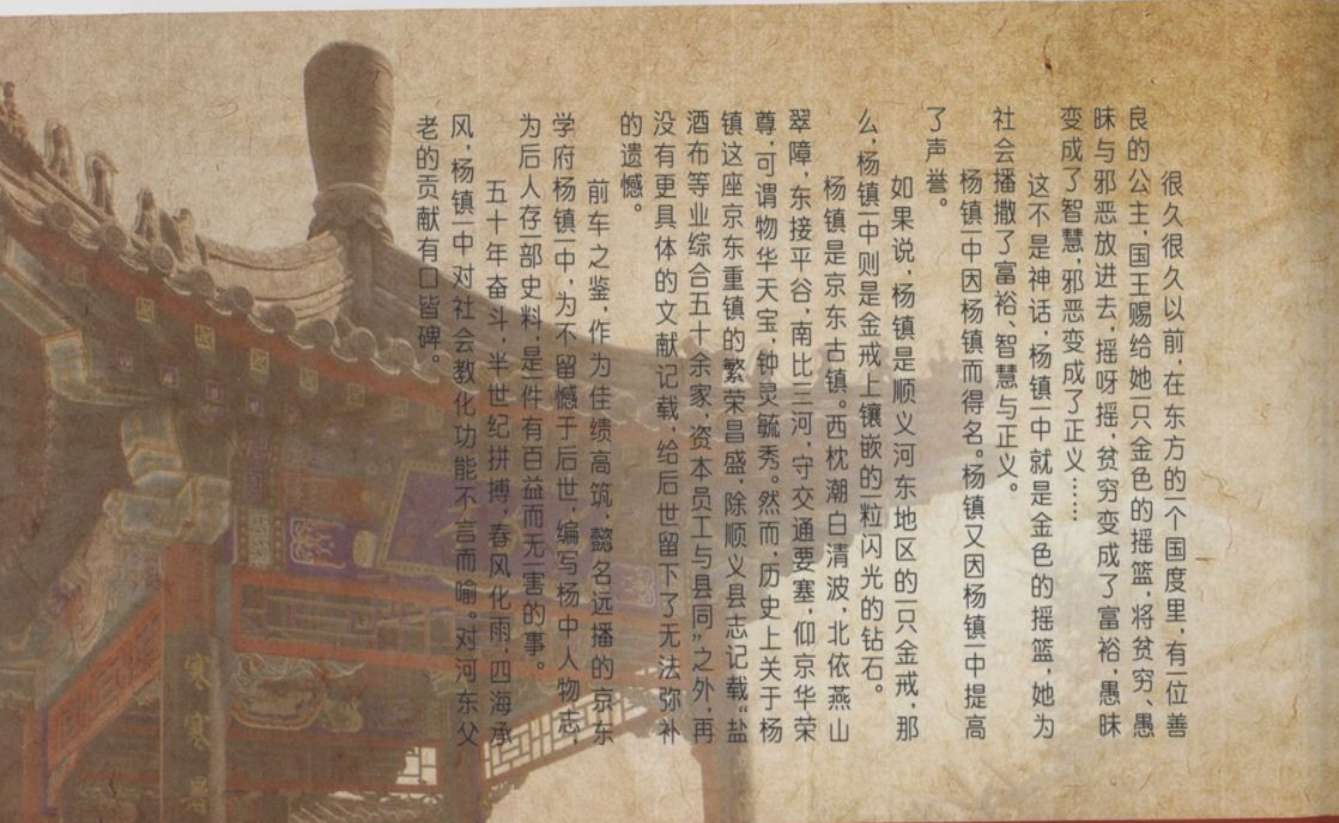 很久很久以前，在东方的一个国度里，有一位善
良的公主，国王赐给她一只金色的摇篮，将贫穷、愚
昧与邪恶放进去，摇呀摇，贫穷变成了富裕，愚昧
变成了智慧，邪恶变成了正义……
这不是神话，杨镇一中就是金色的摇篮，她为
社会播撒了富裕、智慧与正义。
杨镇一中因杨镇而得名。杨镇又因杨镇一中提高
了声誉。
如果说，杨镇是顺义河东地区的一只金戒，那
么，杨镇一中则是金戒上镶嵌的一粒闪光的钻石。
杨镇是京东古镇。西枕潮白清波，北依燕山
翠障，东接平谷，南比三河，守交通要塞，仰京华荣
尊，可谓物华天宝，钟灵毓秀。然而，历史上关于杨
镇这座京东重镇的繁荣昌盛，除顺义县志记载“盐
酒布等业综合五十余家，资本员工与县同”之外，再
没有更具体的文献记载，给后世留下了无法弥补
的遗憾。
前车之鉴，作为佳绩高筑，懿名远播的京东
学府杨镇一中，为不留憾于后世，编写杨中人物志，
为后人存一部史料，是一件有百益而无一害的事。
五十年奋斗，半世纪拼搏，春风化雨，四海承
风，杨镇一中对社会教化功能不言而喻。对河东父
老的贡献有口皆碑。